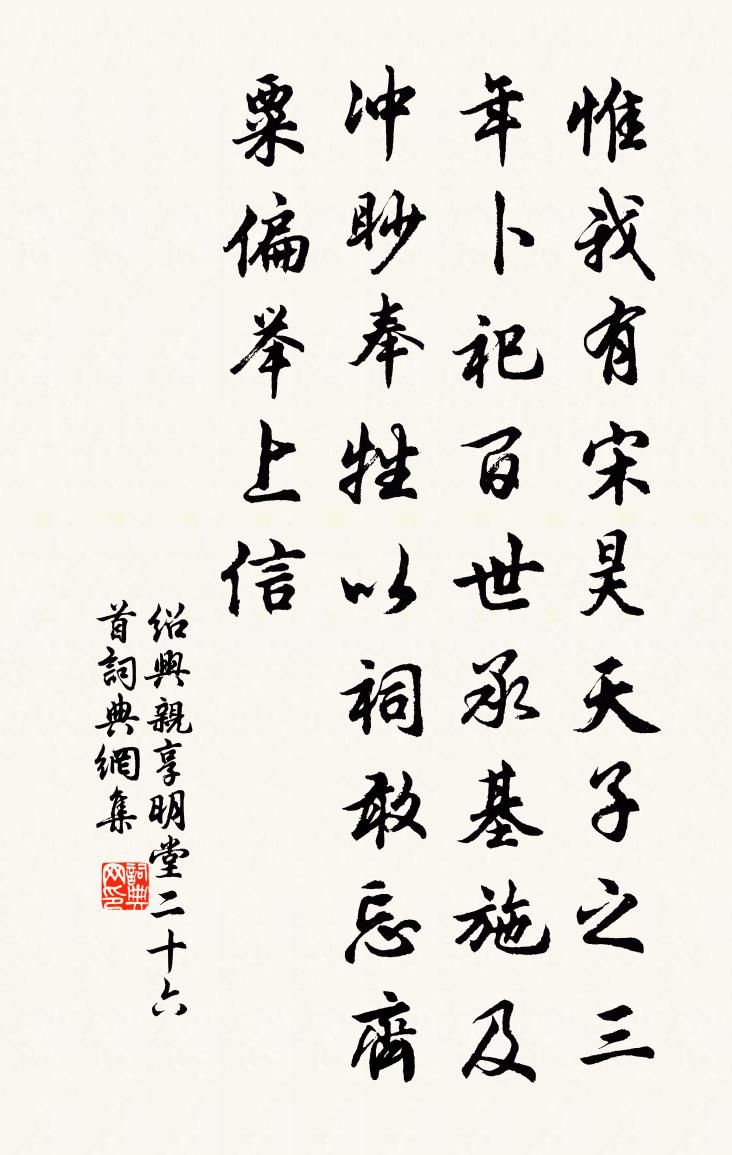 惟我有宋昊天子之三
年卜祀百世承基施及
冲眇奉牲以祠敢忘齊
粟偏举上信
绍興親享明堂二十六
首詞典網集
詞典網印